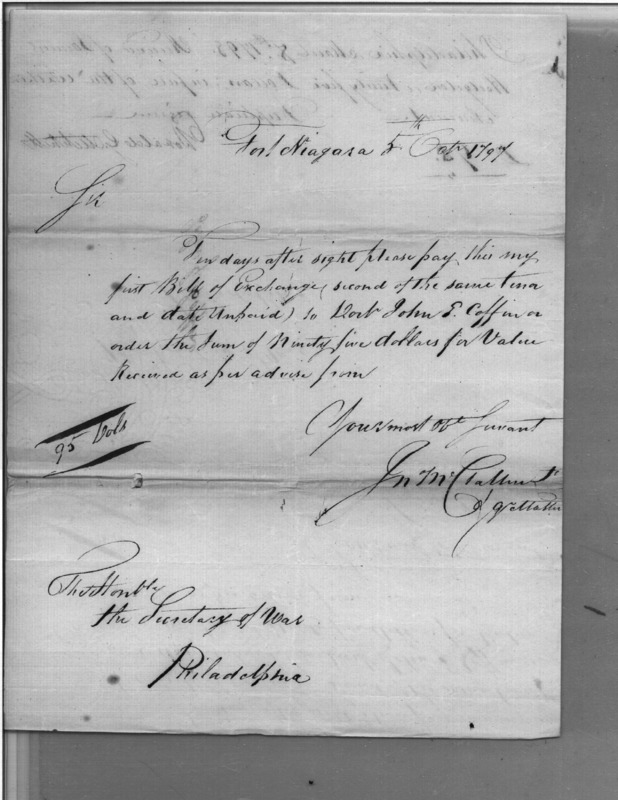 Fort Niagara 5th Octr 1797
Sir
Ten days after sight please pay this my
first Bill of Exchange, (second of the same tenor
and date Unpaid) to Doctr John E. Coffin or
order the Sum of Ninety five dollars for Value
Received as per advise from
Your most Obt Servant
95 Dols
Jn McClallen
The Honble
the Secretary of War
Philadelphia